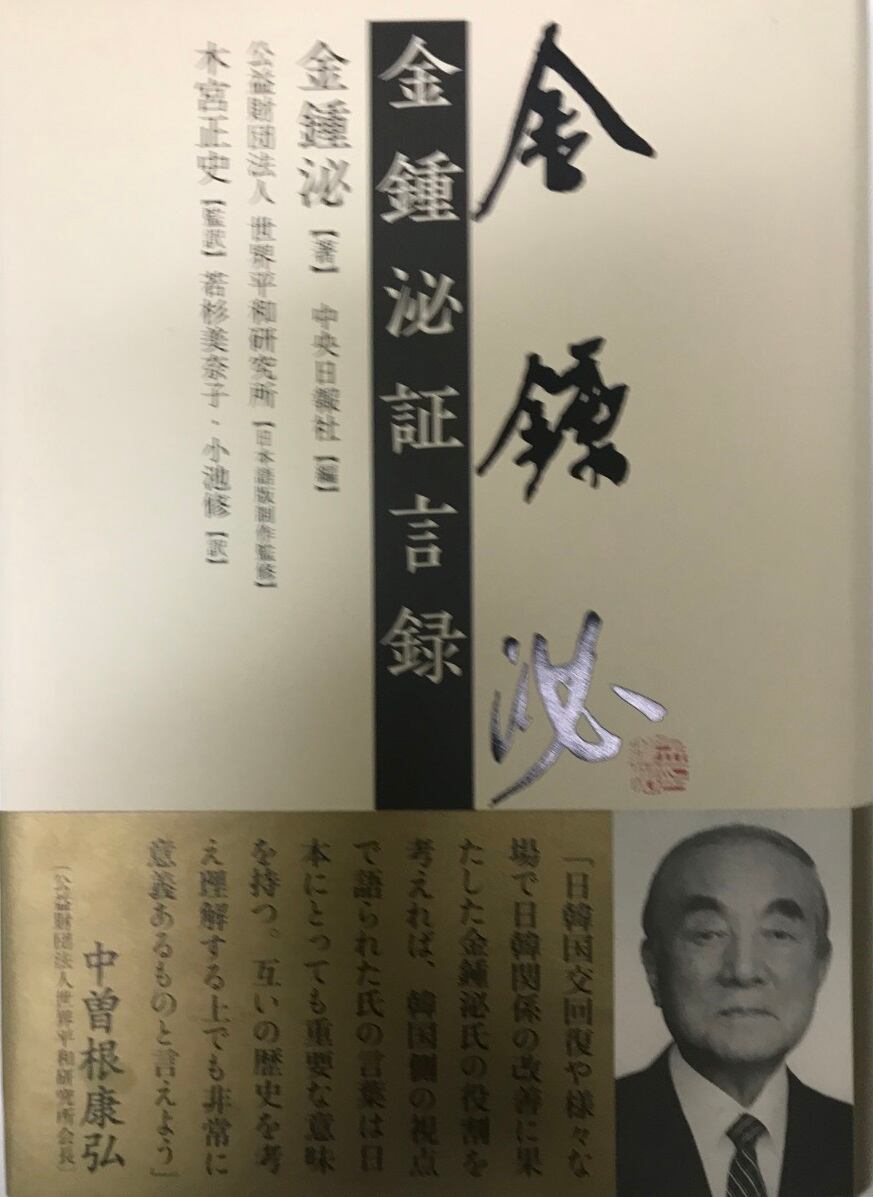 金鍾泌
金鍾泌証言録
金鍾泌【著】 中央日報社【編】
公益財団法人 世界平和研究所【日本語版制作監修】
木宮正史【監訳】若杉美奈子・小池修【訳】
「日韓国交回復や様々な
場で日韓関係の改善に果
たした金鍾泌氏の役割を
考えれば、韓国側の視点
で語られた氏の言葉は日
本にとっても重要な意味
を持つ。互いの歴史を考
え理解する上でも非常に
意義あるものと言えよう」
中曽根康弘
(公益財団法人世界平和研究所会長)